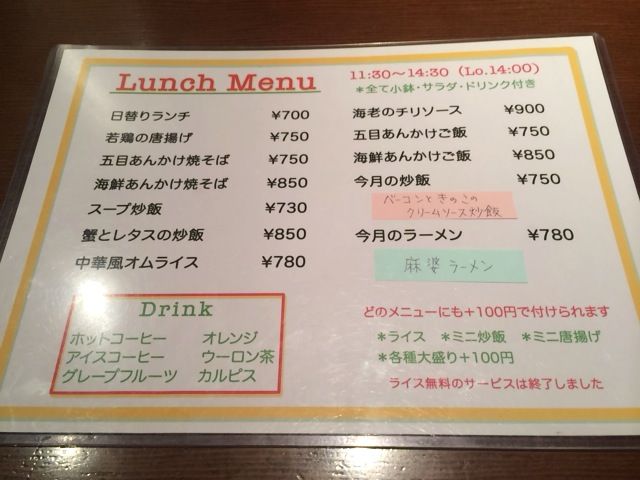 Lunch Menu
11:30〜14:30（Lo.14:00）
＊全て小鉢・サラダ・ドリンク付き
日替りランチ ¥700
若鶏の唐揚げ ¥750
五目あんかけ焼そば ¥750
海鮮あんかけ焼そば ¥850
スープ炒飯 ¥730
蟹とレタスの炒飯 ¥850
中華風オムライス ¥780
海老のチリソース ¥900
五目あんかけご飯 ¥750
海鮮あんかけご飯 ¥850
今月の炒飯 ¥750
ベーコンときのこの
クリームソース炒飯
今月のラーメン ¥780
麻婆ラーメン
Drink
ホットコーヒー オレンジ
アイスコーヒー ウーロン茶
グレープフルーツ カルピス
どのメニューにも+100円で付けられます
＊ライス ＊ミニ炒飯 ＊ミニ唐揚げ
＊各種大盛り+100円
ライス無料のサービスは終了しました